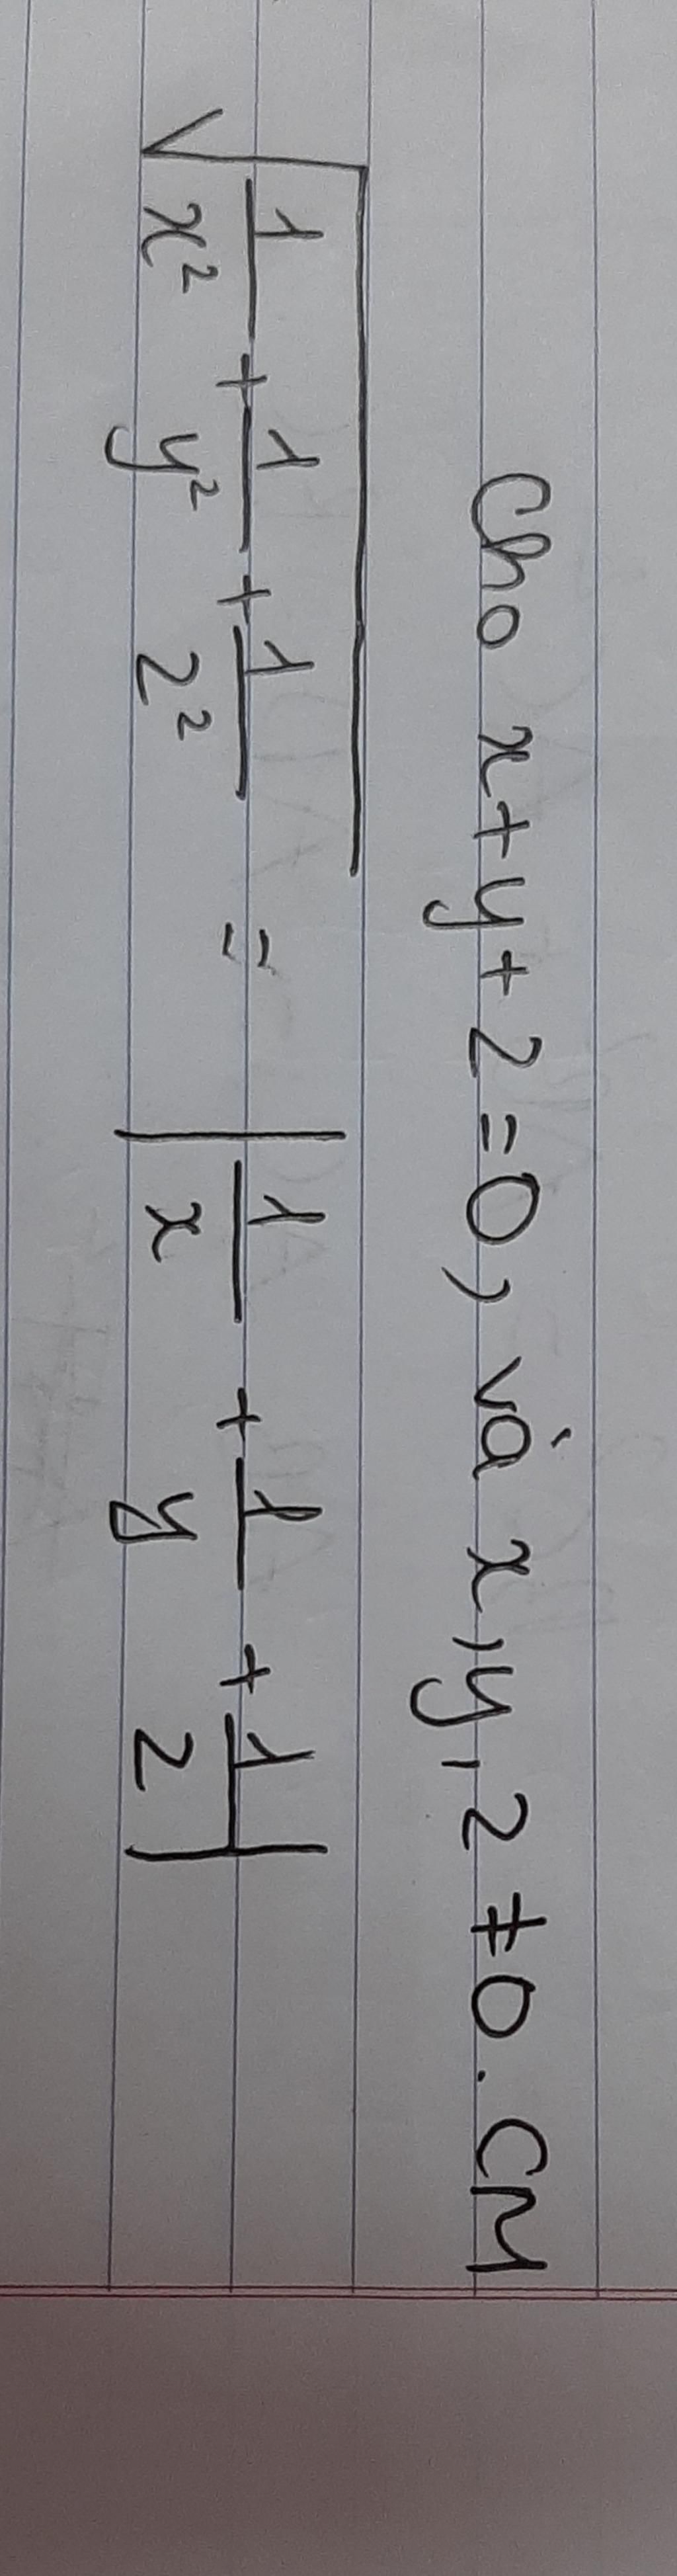 Cho x+y+z=0, và x,y,z ≠0. CM
√(1/x² + 1/y² + 1/z²) = |1/x + 1/y + 1/z|